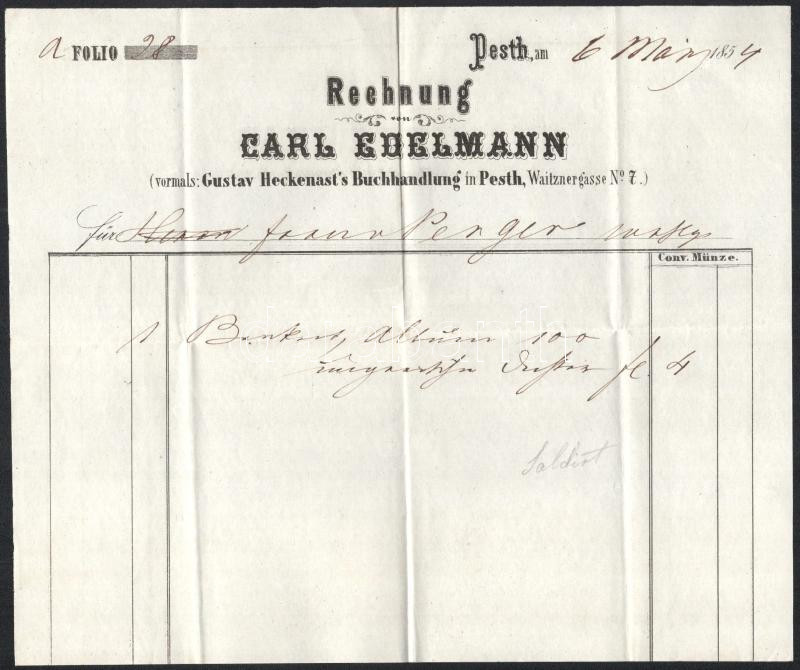 a FOLIO 28
Pesth, am 6 März 1854
Rechnung
von
CARL EDELMANN
(vormals: Gustav Heckenast's Buchhandlung in Pesth, Waitznergasse No 7.)
für Herrn Penger
Conv. Münze.
1 Album 100
ungarischer Dichter fl. 4
Saldirt